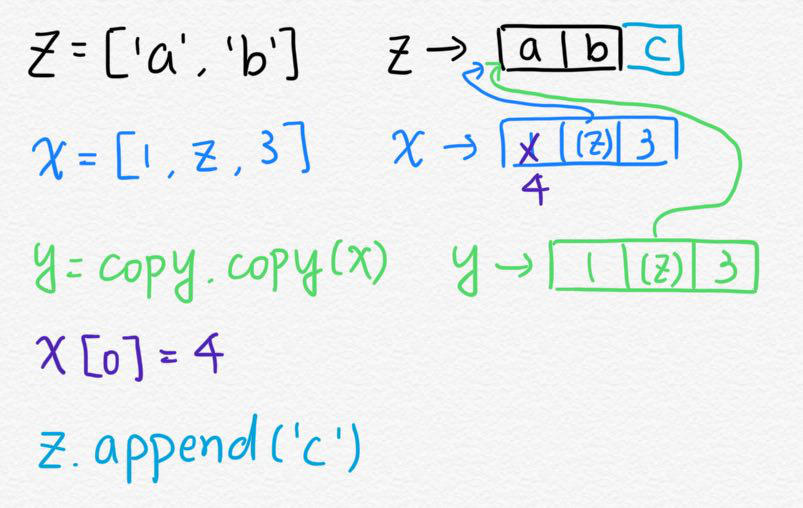 z = ['a', 'b'] z → a b c
x = [1, z, 3] x → 1 (z) 3
4
y = copy.copy(x) y → 1 (z) 3
x[0] = 4
z.append('c')